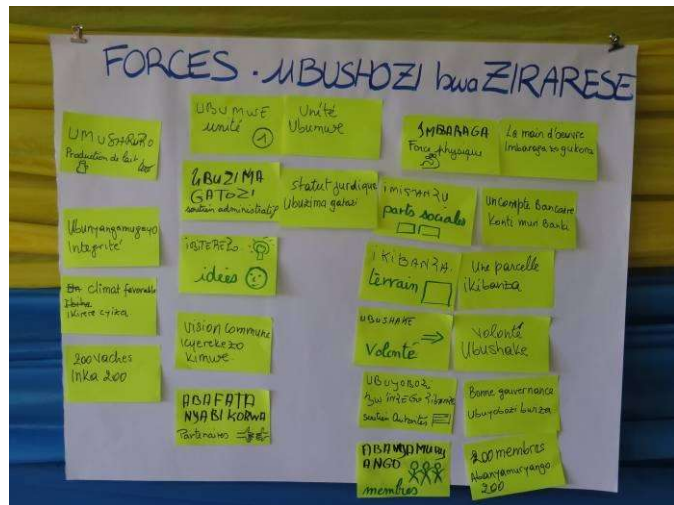 FORCES . UBUSHOZI bwa ZIRARESE
UMUSARURO
Production de lait
Ubunyangamugayo
Integrité
climat favorable
ikirere cyiza
200 vaches
Inka 200
UBUMWE
unité 1
Unité
Ubumwe
UBUZIMA
GATOZI
soutien administratif
Statut juridique
Ubuzima gatozi
idées
Vision commune
icyerekezo
kimwe
ABAFATA
NYABIKORWA
Partenaires
IMBARAGA
Force physique
La main d'oeuvre
Imbaraga zo gukora
IMIGANZU
parts sociales
Un Compte Bancaire
Konti muri Banki
IKIBANZA
terrain
Une parcelle
ikibanza
UBUSHAKE
Volonté
Volonté
Ubushake
UBUYOBOZI
soutien Autorités
Bonne gouvernance
Ubuyobozi bwiza
ABANYAMURY
ANGO
membres
200 membres
Abanyamuryango
200